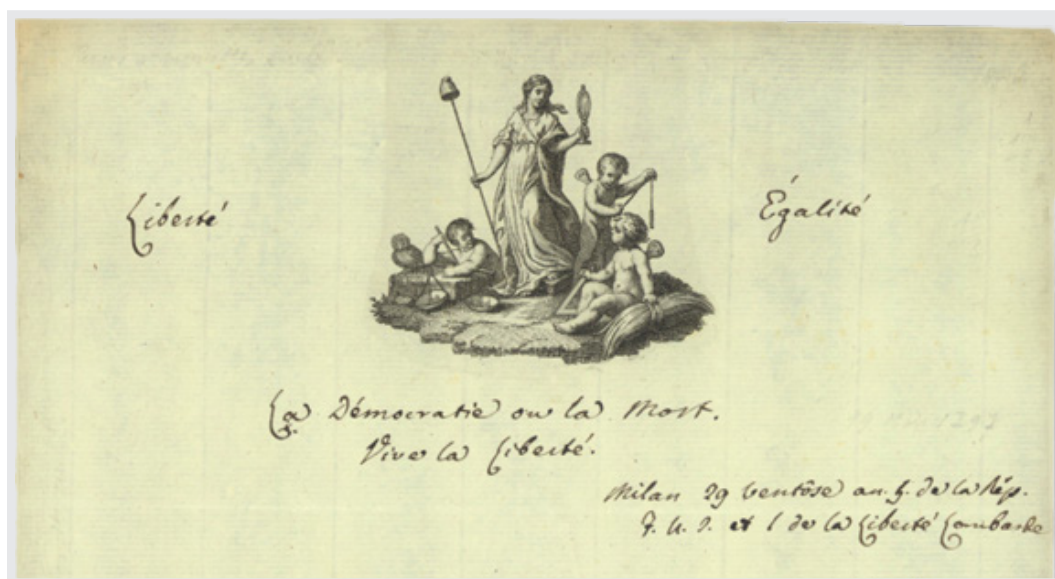 Liberté
Égalité
La Démocratie ou la Mort.
Vive la Liberté.
Milan 29 ventôse an. 5. de la Rép.
F. U. I. et 1 de la Liberté Lombarde